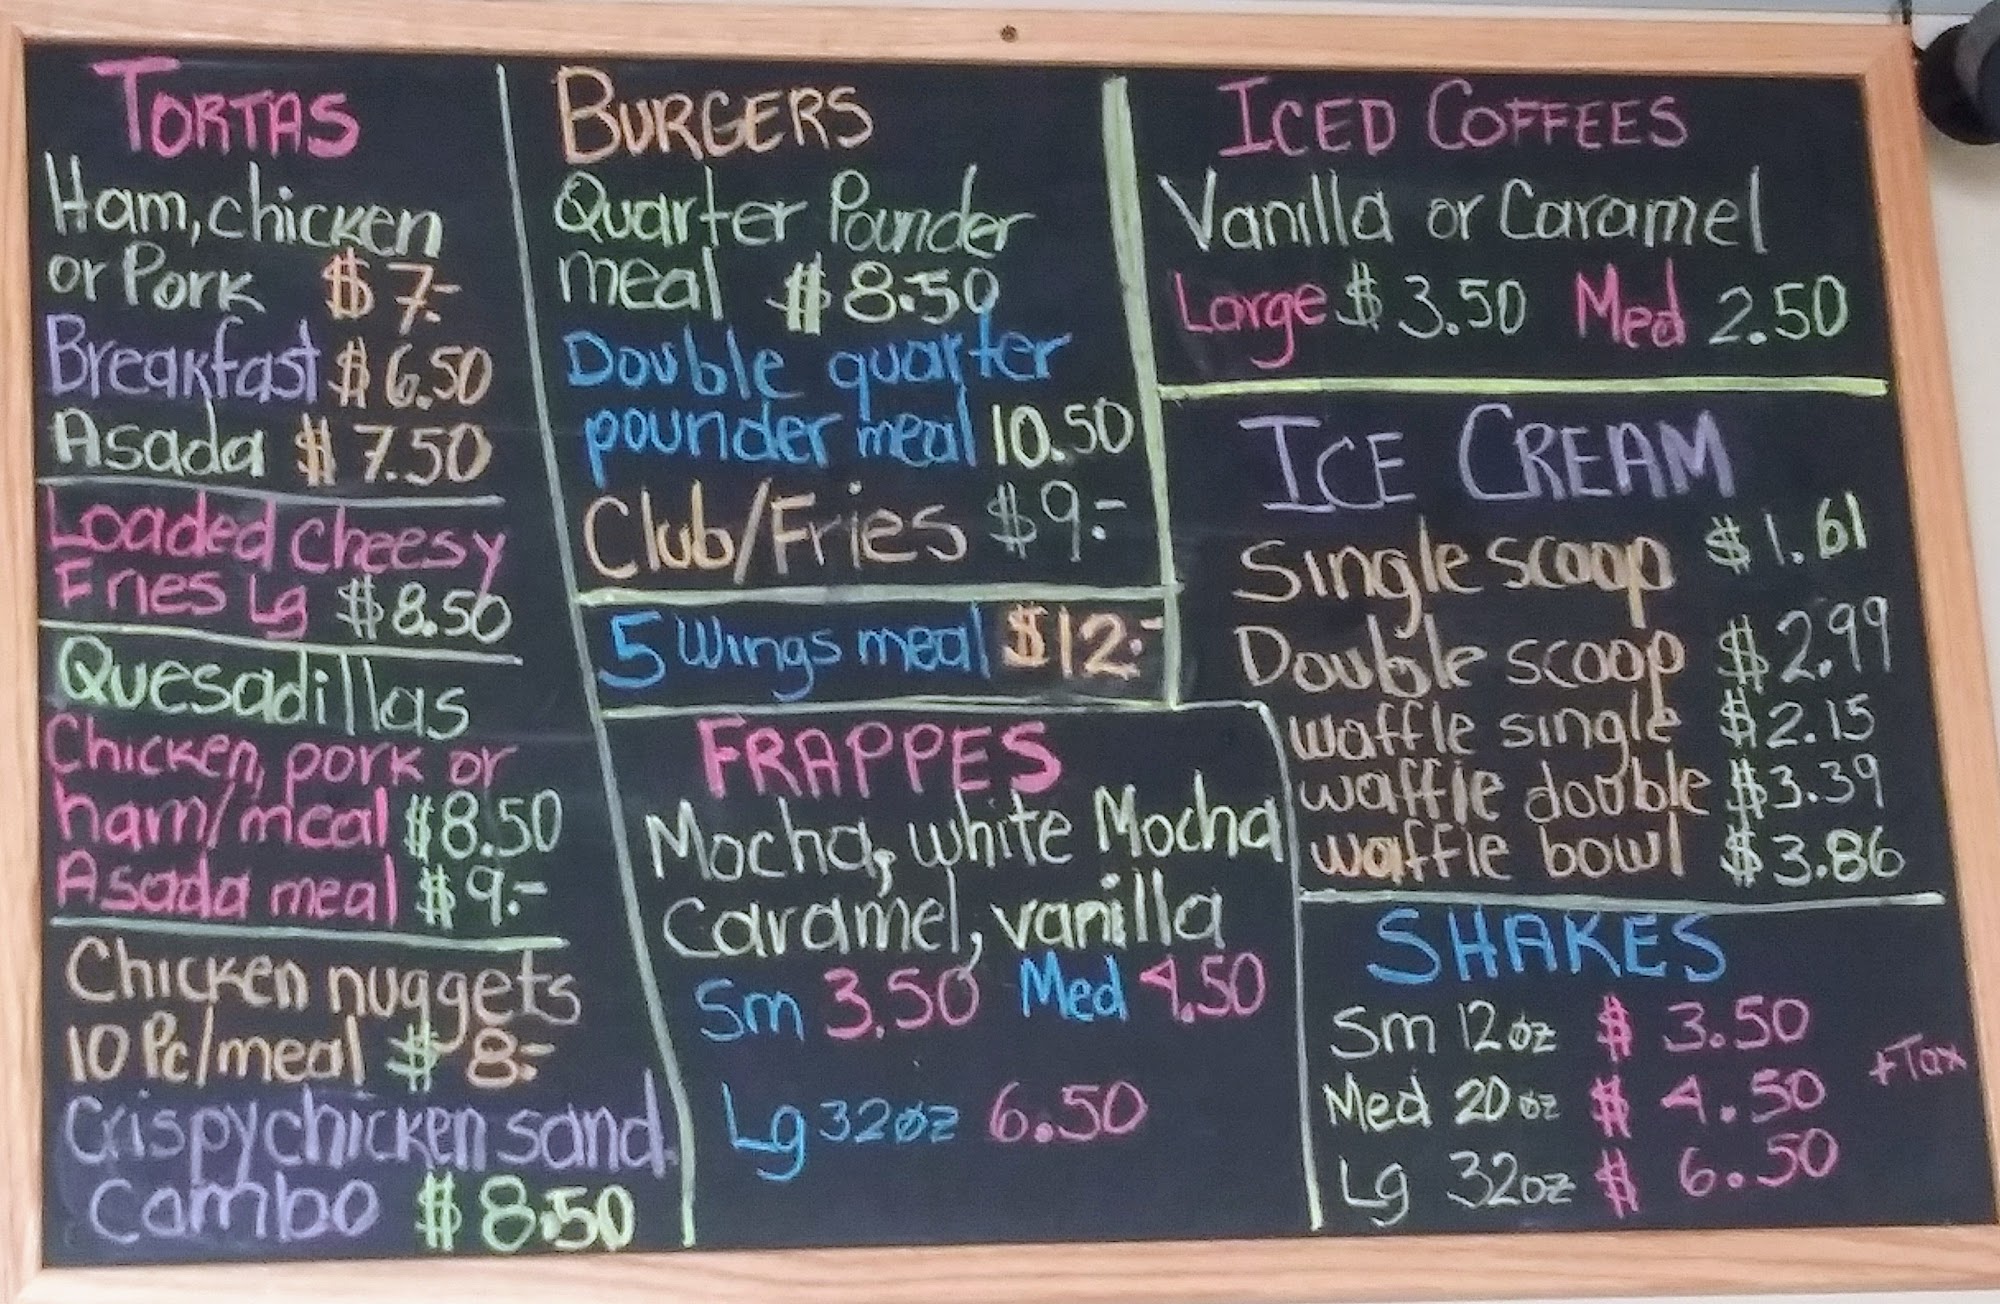 TORTAS
Ham, chicken
or Pork $7.-
Breakfast $6.50
Asada $7.50
Loaded cheesy
Fries Lg $8.50
Quesadillas
Chicken, pork or
ham/meal $8.50
Asada meal $9.-
Chicken nuggets
10 Pc/meal $8.-
Crispy chicken sand.
combo $8.50
BURGERS
Quarter Pounder
meal $8.50
Double quarter
pounder meal 10.50
Club/Fries $9.-
5 Wings meal $12.-
FRAPPES
Mocha, white Mocha
Caramel, vanilla
Sm 3.50 Med 4.50
Lg 32oz 6.50
ICED COFFEES
Vanilla or Caramel
Large $3.50 Med 2.50
ICE CREAM
Single scoop $1.61
Double scoop $2.99
waffle single $2.15
waffle double $3.39
waffle bowl $3.86
SHAKES
Sm 12oz $3.50
Med 20oz $4.50 +Tax
Lg 32oz $6.50